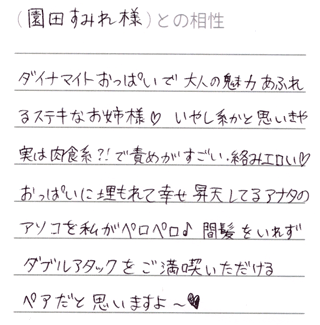 (園田すみれ様)との相性
ダイナマイトおっぱいで大人の魅力あふれ
るステキなお姉様♡ いやし系かと思いきや
実は肉食系?!で責めがすごい、絡みエロい♡
おっぱいに埋もれて幸せ昇天してるアナタの
アソコを私がペロペロ♪ 間髪をいれず
ダブルアタックをご満喫いただける
ペアだと思いますよ〜♥